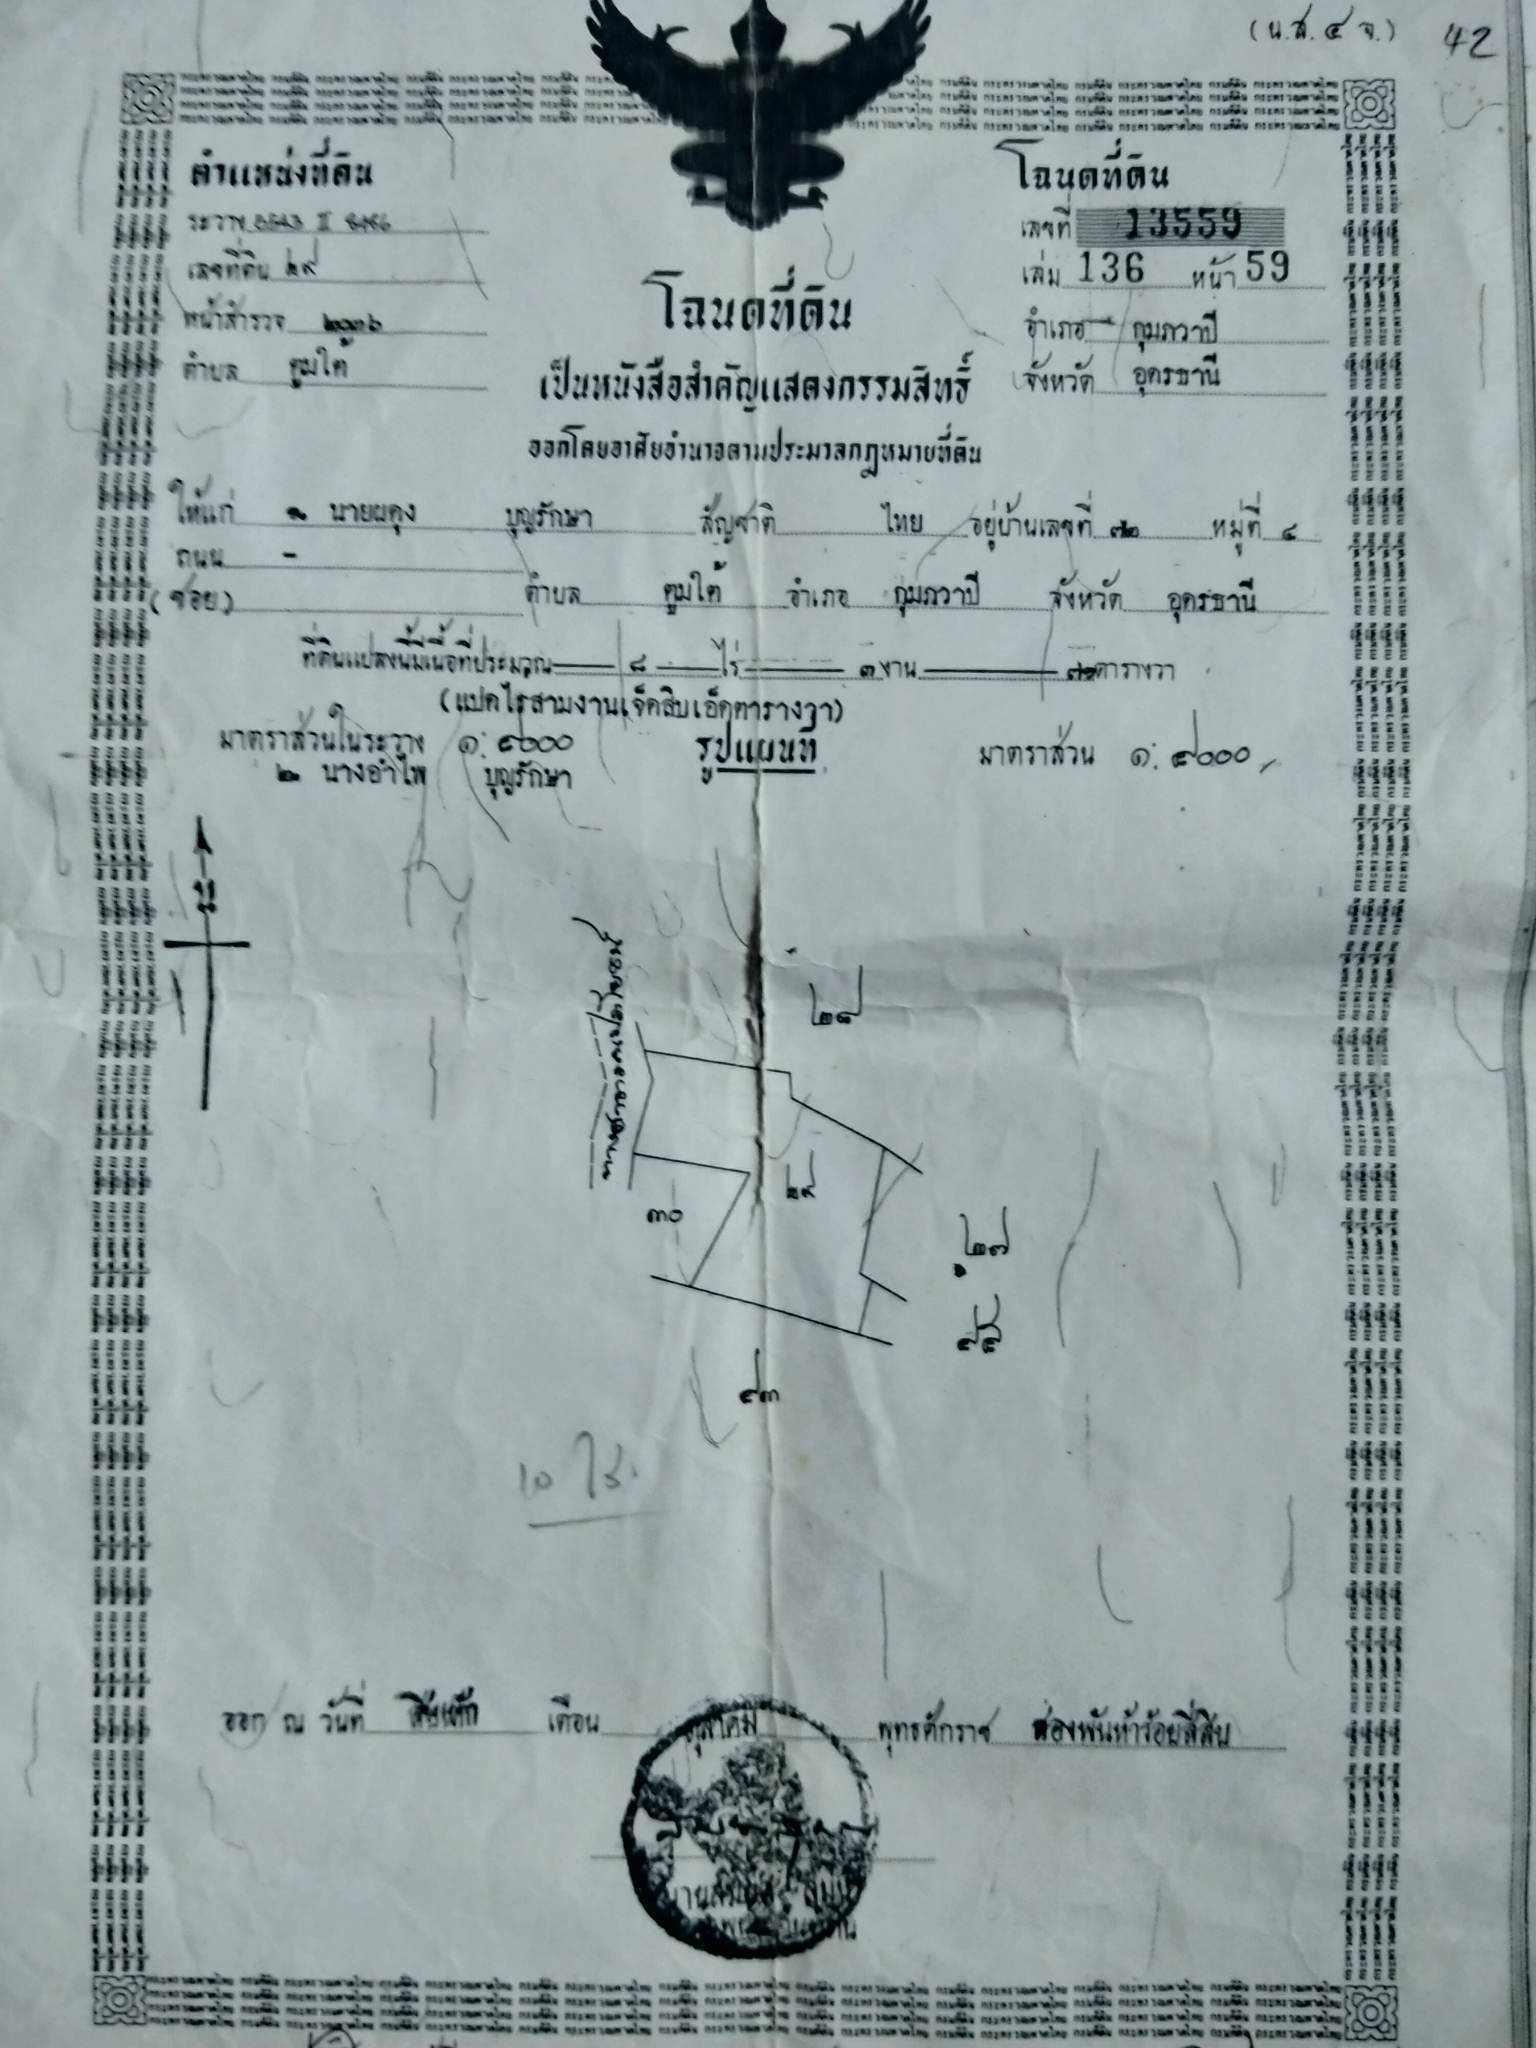 (น.ส.๔ จ.) 42
ตำแหน่งที่ดิน
ระวาง 5543 II 8486
เลขที่ดิน ๒๙
หน้าสำรวจ
ตำบล ตูมใต้
โฉนดที่ดิน
เลขที่ 13559
เล่ม 136 หน้า 59
อำเภอ กุมภวาปี
จังหวัด อุดรธานี
โฉนดที่ดิน
เป็นหนังสือสำคัญแสดงกรรมสิทธิ์
ออกโดยอาศัยอำนาจตามประมวลกฎหมายที่ดิน
ให้แก่ ๑ นายผดุง บุญรักษา สัญชาติ ไทย อยู่บ้านเลขที่ ๗๒ หมู่ที่ ๔
ถนน -
(ซอย) ตำบล ตูมใต้ อำเภอ กุมภวาปี จังหวัด อุดรธานี
ที่ดินแปลงนี้มีเนื้อที่ประมาณ ๘ ไร่ ๓ งาน ๗๑ ตารางวา
(แปดไร่สามงานเจ็ดสิบเอ็ดตารางวา)
มาตราส่วนในระวาง ๑:๔๐๐๐ รูปแผนที่ มาตราส่วน ๑:๔๐๐๐
๒ นางอำไพ บุญรักษา
๒๘
๒๙
๓๐
๒๗
๔๓
10 ไร่
ออก ณ วันที่ สิบเก้า เดือน ตุลาคม พุทธศักราช สองพันห้าร้อยสี่สิบ